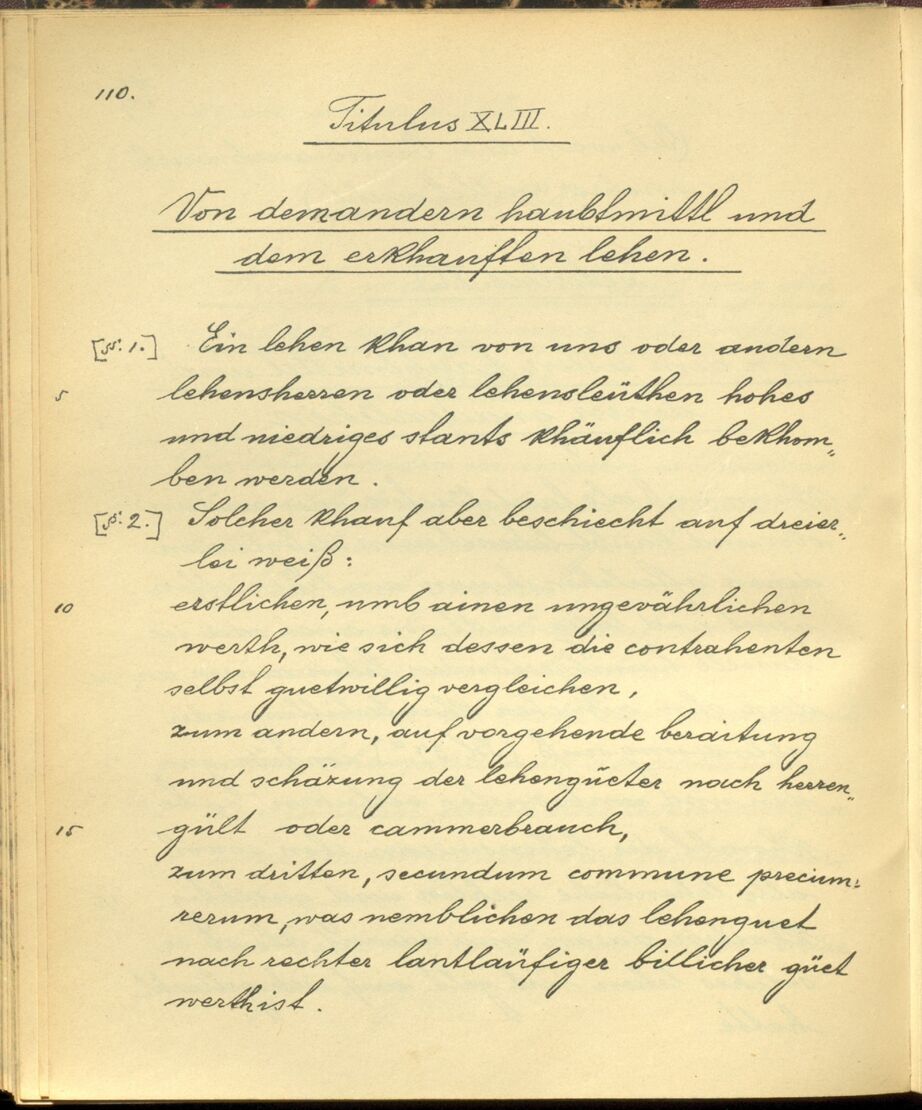 110.
Titulus XLIII.
Von dem andern haubtmittl und
dem erkhauften lehen.
[§. 1.] Ein lehen khan von uns oder andern
5 lehensherren oder lehensleüthen hohes
und niedriges stants khäuflich bekhom„
ben werden.
[§. 2.] Solcher khauf aber beschiecht auf dreier„
lei weiß:
10 erstlichen, umb ainen ungevährlichen
werth, wie sich dessen die contrahenten
selbst guetwillig vergleichen,
zum andern, auf vorgehende beraitung
und schäzung der lehengüeter nach herren„
15 gült oder cammerbrauch,
zum dritten, secundum commune precium
rerum, was nemblichen das lehenguet
nach rechter lantläufiger billicher güet
werth ist.